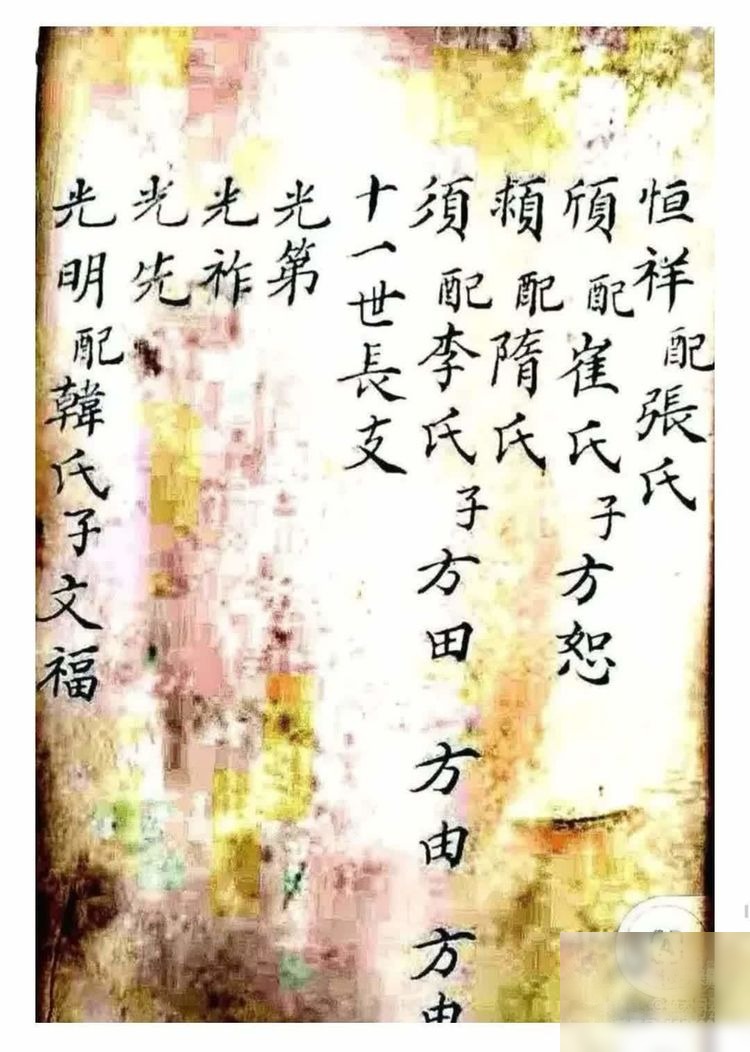 恒祥配張氏
頎配崔氏子方恕
頼配隋氏
須配李氏子方田 方由 方
十一世長支
光第
光祚
光先
光明配韓氏子文福